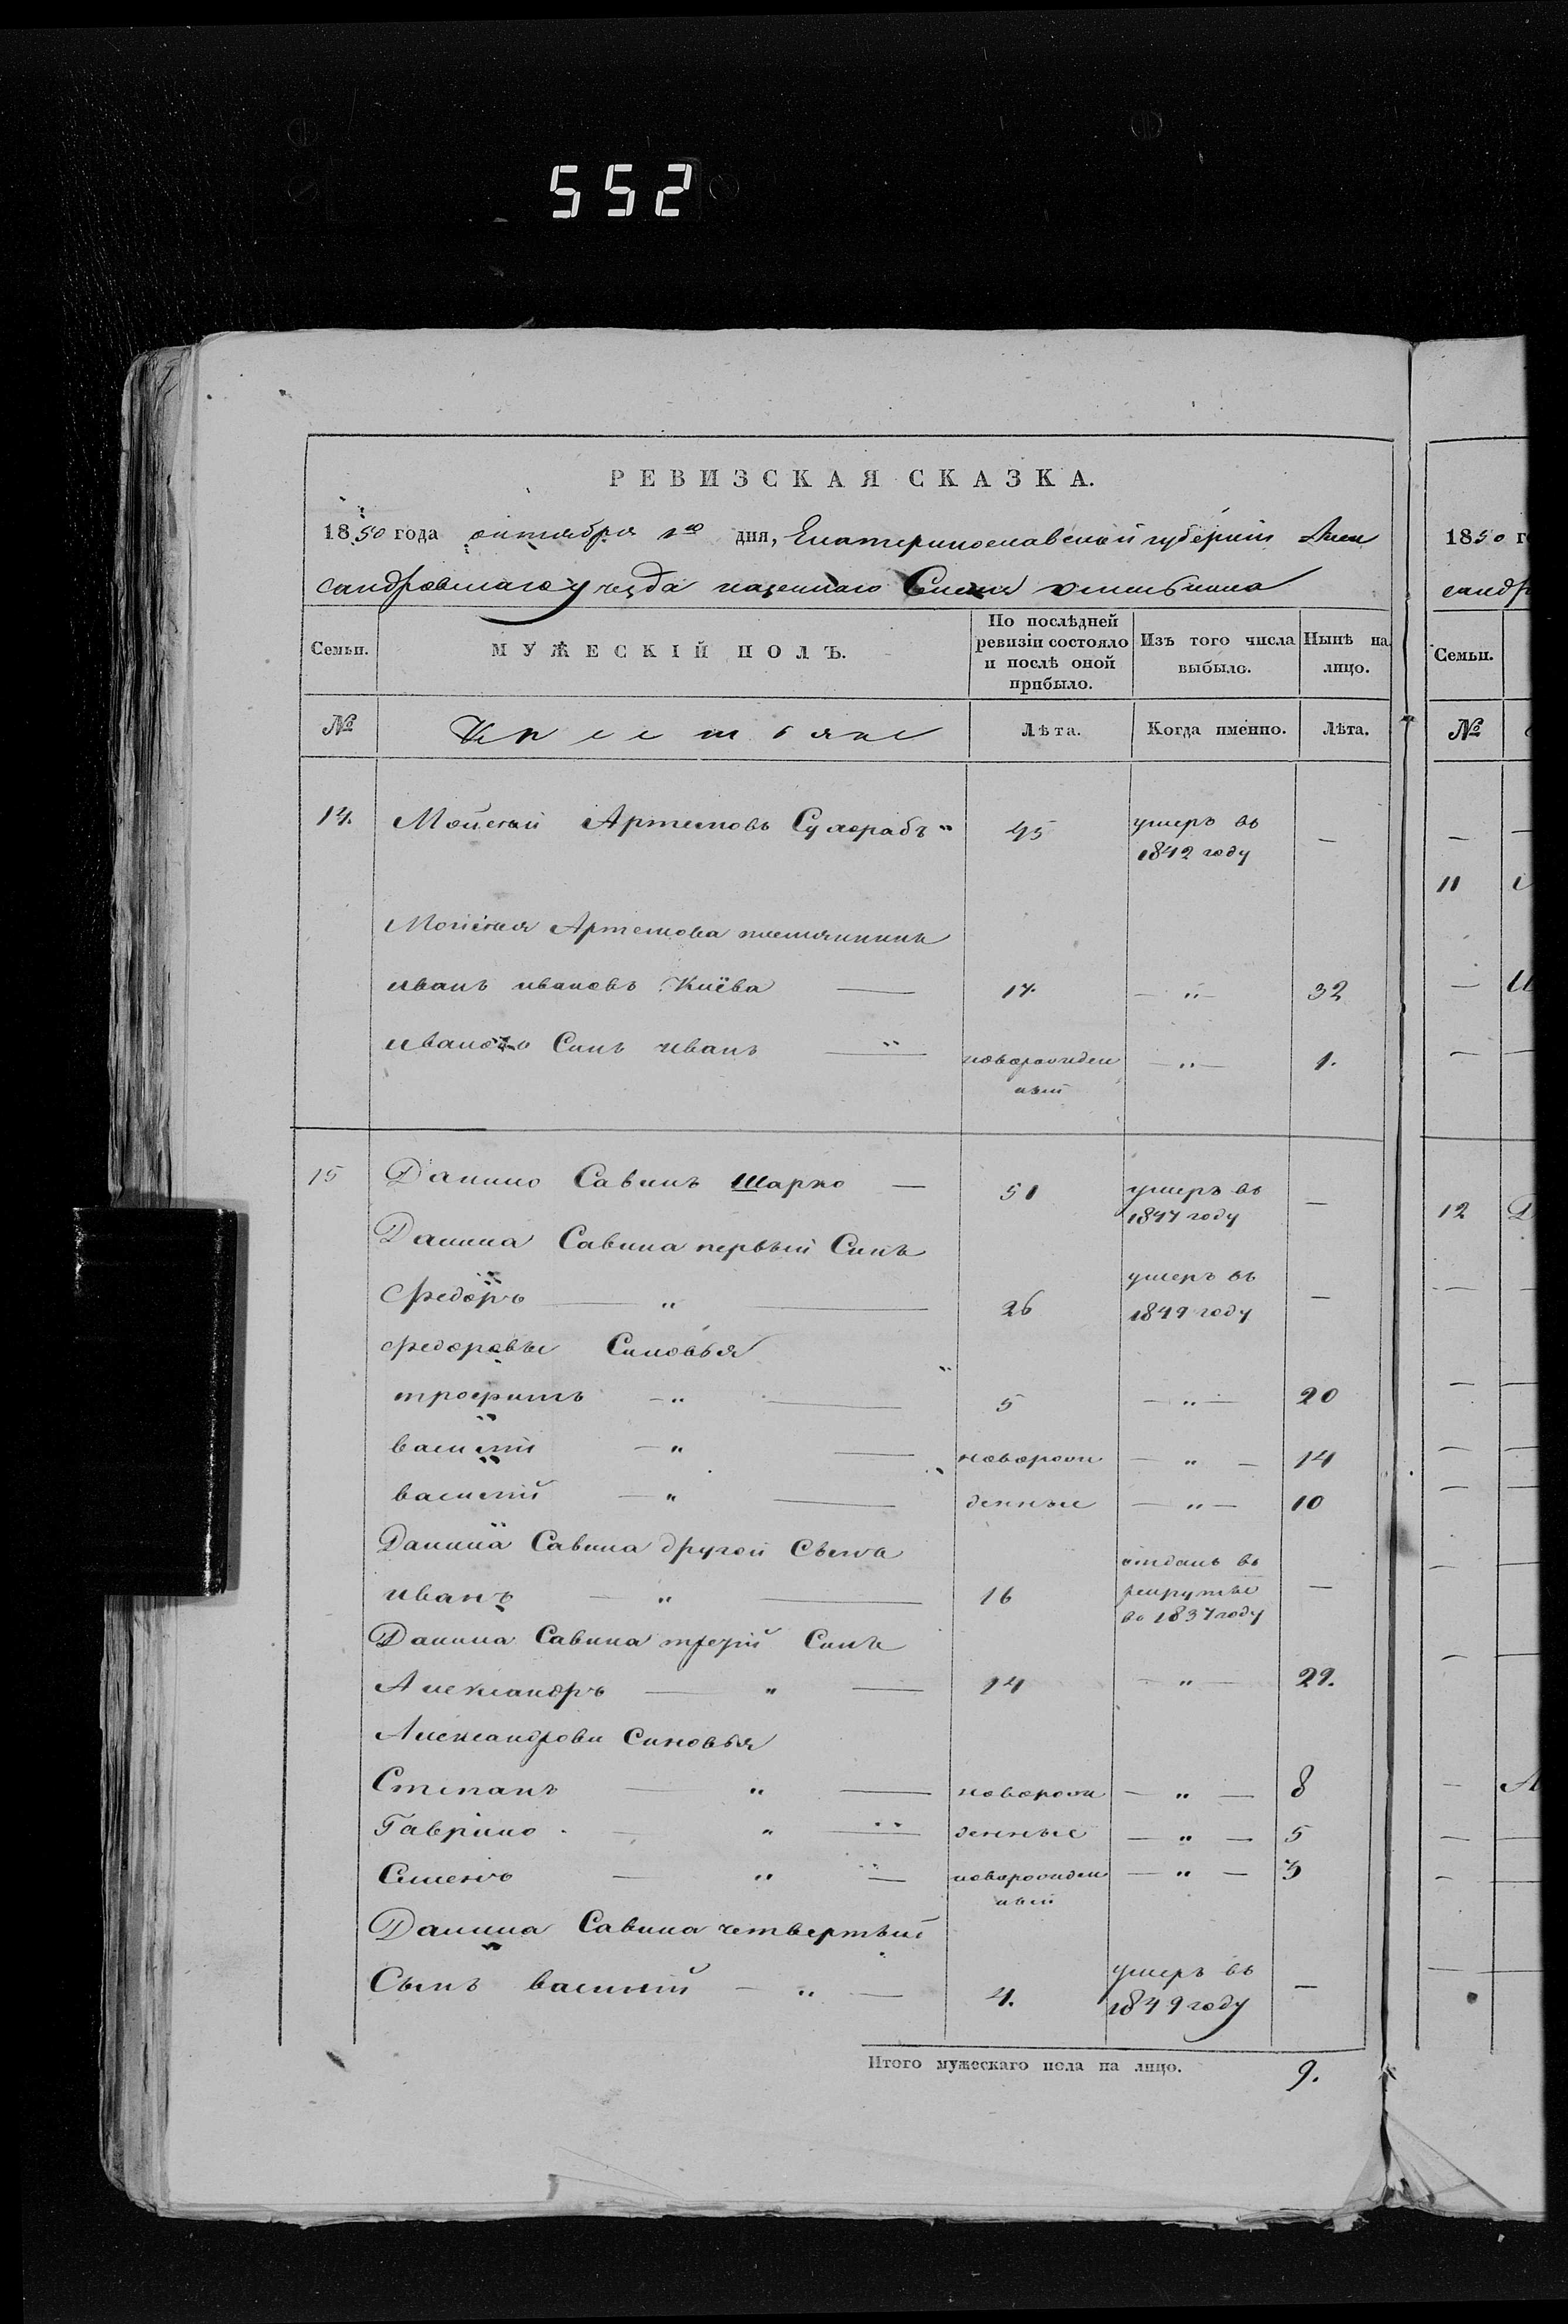 552
РЕВИЗСКАЯ СКАЗКА.
1850 года октября 1го дня, Екатеринославской губернiи Алек
сандровскаго уезда казеннаго Села
Семьи. МУЖЕСКІЙ ПОЛЪ. По послѣдней ревизіи состояло и послѣ оной прибыло. Изъ того числа выбыло. Нынѣ на лицо.
№ Крестьяне Лѣта. Когда именно. Лѣта.
14. Моисей Артемовъ 45 умеръ въ 1842 году —
Моисея Артемова племянникъ
иванъ ивановъ Киёва — 17. — " — 32
Сынъ иванъ — новорожден ный — " — 1.
15 Данило Савинъ Шарко — 51 умеръ въ 1847 году —
Данила Савина первый Синъ
Федоръ — " — 26 умеръ въ 1849 году —
Федоровы Синовья
трофимъ — " — 5 — " — 20
василий — " — новорож — " — 14
василий — " — денные — " — 10
Данила Савина другой Сынъ
иванъ — " — 16 отданъ въ рекруты въ 1837 году —
Данила Савина третій Синъ
Александръ — " — 14 — " — 29.
Александрови Синовья
Степанъ — " — новорож — " — 8
Гаврило — " — денные — " — 5
Семенъ — " — новорожден ный — " — 3
Данила Савина четвертый
Сынъ василий — " — 4. умеръ въ 1849 году —
Итого мужескаго пола на лицо. 9.
1850 г
сандр
Семьи.
№
11
12